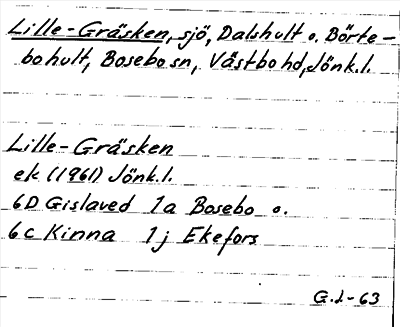 Lille-Gräsken, sjö, Dalshult o. Börte-
bohult, Bosebo sn, Västbo hd, Jönk.l.
Lille-Gräsken
ek (1961) Jönk.l.
6D Gislaved 1a Bosebo o.
6c Kinna 1j Ekefors
G.L-63